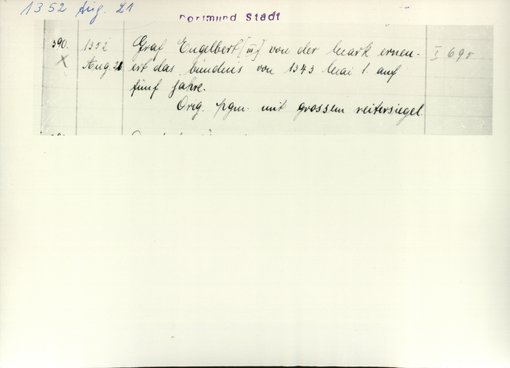 1352 Aug. 21
Dortmund Stadt
390. 1352 Graf Engelbert [III] von der Mark ernen- I 69r
X Aug 21 ert das bündnis von 1343 Mai 1. auf
fünf jahre.
Orig. pgm. mit grossem reitersiegel.